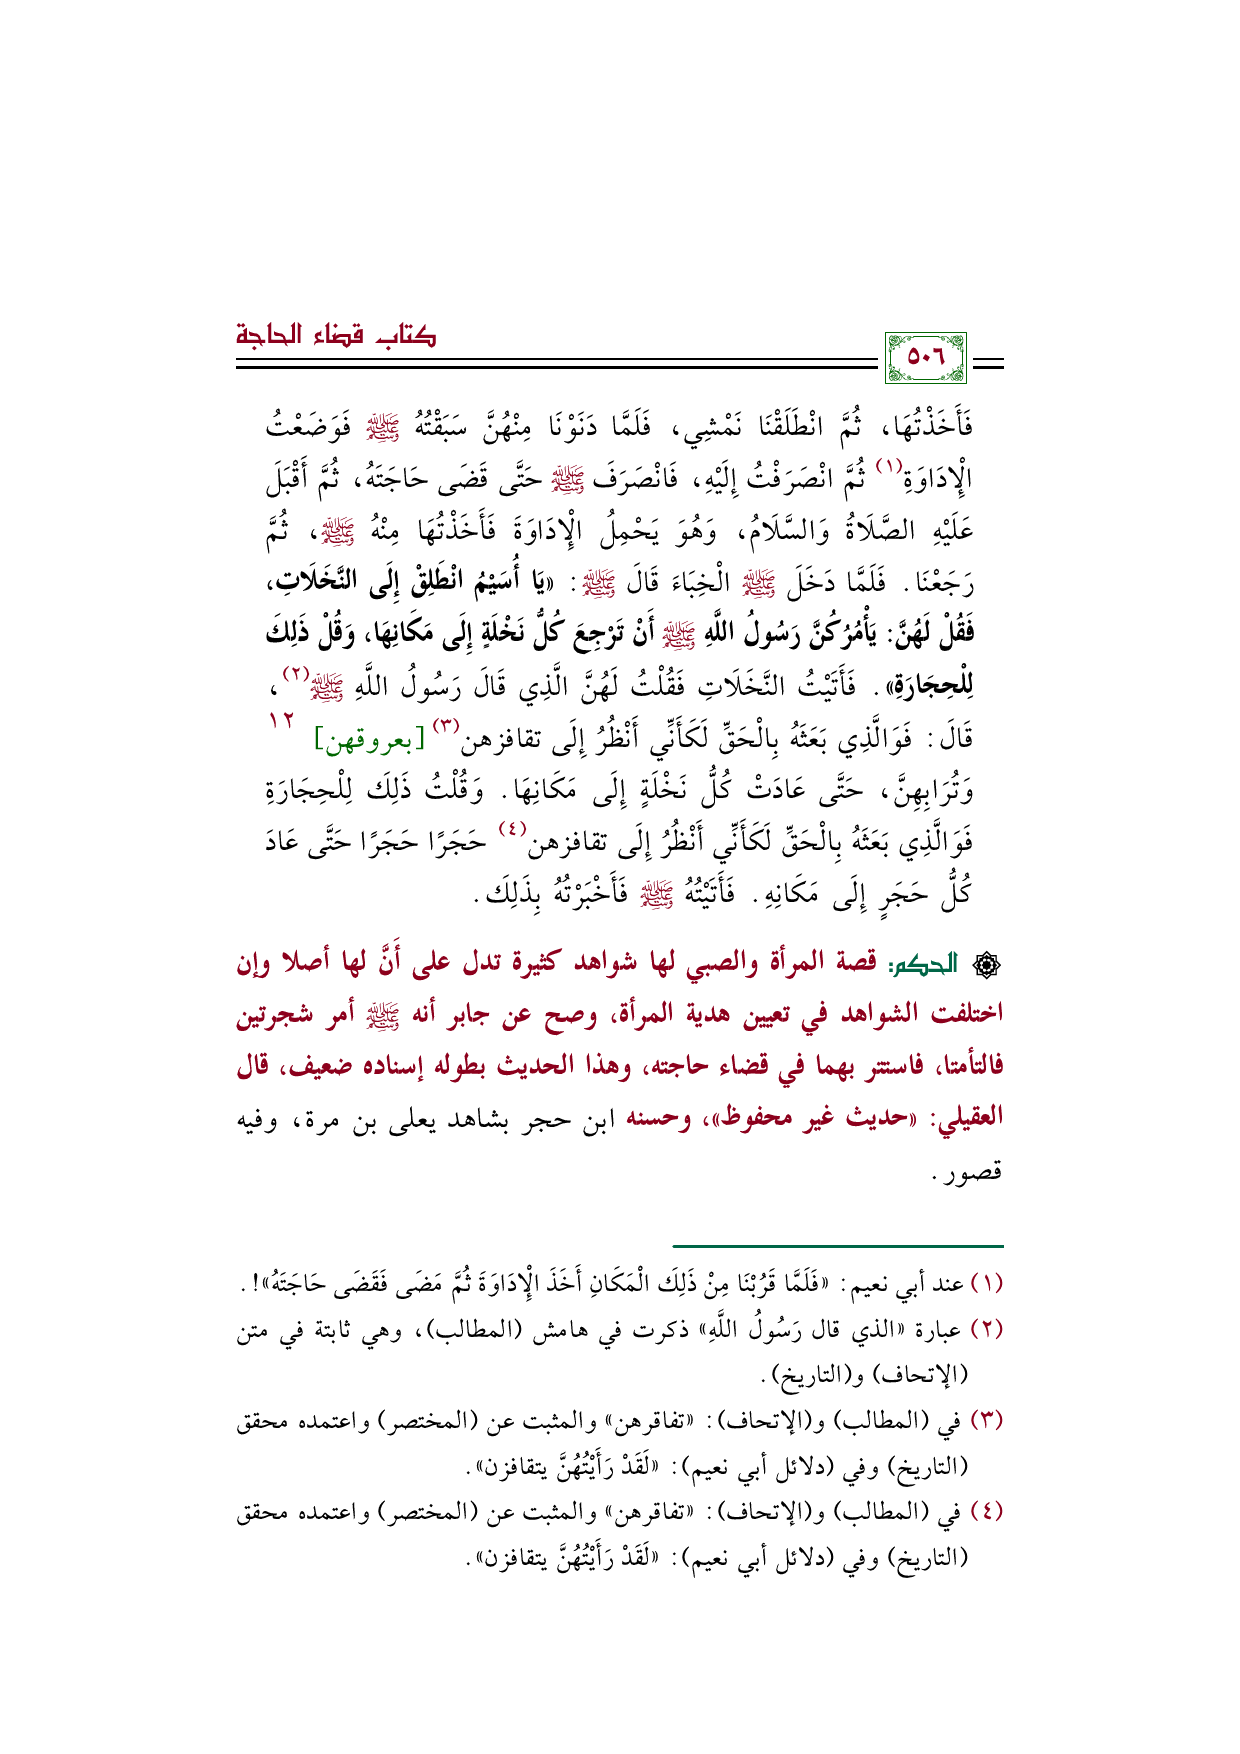 كتاب قضاء الحاجة
٥٠٦
فَأَخَذْتُهَا، ثُمَّ انْطَلَقْنَا نَمْشِي، فَلَمَّا دَنَوْنَا مِنْهُنَّ سَبَقْتُهُ ﷺ فَوَضَعْتُ
الْإِدَاوَةِ(١) ثُمَّ انْصَرَفْتُ إِلَيْهِ، فَانْصَرَفَ ﷺ حَتَّى قَضَى حَاجَتَهُ، ثُمَّ أَقْبَلَ
عَلَيْهِ الصَّلَاةُ وَالسَّلَامُ، وَهُوَ يَحْمِلُ الْإِدَاوَةَ فَأَخَذْتُهَا مِنْهُ ﷺ، ثُمَّ
رَجَعْنَا. فَلَمَّا دَخَلَ ﷺ الْخِبَاءَ قَالَ ﷺ: «يَا أُسَيْمُ انْطَلِقْ إِلَى النَّخَلَاتِ،
فَقُلْ لَهُنَّ: يَأْمُرُكُنَّ رَسُولُ اللَّهِ ﷺ أَنْ تَرْجِعَ كُلُّ نَخْلَةٍ إِلَى مَكَانِهَا، وَقُلْ ذَلِكَ
لِلْحِجَارَةِ». فَأَتَيْتُ النَّخَلَاتِ فَقُلْتُ لَهُنَّ الَّذِي قَالَ رَسُولُ اللَّهِ ﷺ(٢)،
قَالَ: فَوَالَّذِي بَعَثَهُ بِالْحَقِّ لَكَأَنِّي أَنْظُرُ إِلَى تقافزهن(٣) [بعروقهن] ١٢
وَتُرَابِهِنَّ، حَتَّى عَادَتْ كُلُّ نَخْلَةٍ إِلَى مَكَانِهَا. وَقُلْتُ ذَلِكَ لِلْحِجَارَةِ
فَوَالَّذِي بَعَثَهُ بِالْحَقِّ لَكَأَنِّي أَنْظُرُ إِلَى تقافزهن(٤) حَجَرًا حَجَرًا حَتَّى عَادَ
كُلُّ حَجَرٍ إِلَى مَكَانِهِ. فَأَتَيْتُهُ ﷺ فَأَخْبَرْتُهُ بِذَلِكَ.
الحكم: قصة المرأة والصبي لها شواهد كثيرة تدل على أَنَّ لها أصلا وإن
اختلفت الشواهد في تعيين هدية المرأة، وصح عن جابر أنه ﷺ أمر شجرتين
فالتأمتا، فاستتر بهما في قضاء حاجته، وهذا الحديث بطوله إسناده ضعيف، قال
العقيلي: «حديث غير محفوظ»، وحسنه ابن حجر بشاهد يعلى بن مرة، وفيه
قصور.
(١) عند أبي نعيم: «فَلَمَّا قَرُبْنَا مِنْ ذَلِكَ الْمَكَانِ أَخَذَ الْإِدَاوَةَ ثُمَّ مَضَى فَقَضَى حَاجَتَهُ»!.
(٢) عبارة «الذي قال رَسُولُ اللَّهِ» ذكرت في هامش (المطالب)، وهي ثابتة في متن
(الإتحاف) و(التاريخ).
(٣) في (المطالب) و(الإتحاف): «تفاقرهن» والمثبت عن (المختصر) واعتمده محقق
(التاريخ) وفي (دلائل أبي نعيم): «لَقَدْ رَأَيْتُهُنَّ يتقافزن».
(٤) في (المطالب) و(الإتحاف): «تفاقرهن» والمثبت عن (المختصر) واعتمده محقق
(التاريخ) وفي (دلائل أبي نعيم): «لَقَدْ رَأَيْتُهُنَّ يتقافزن».